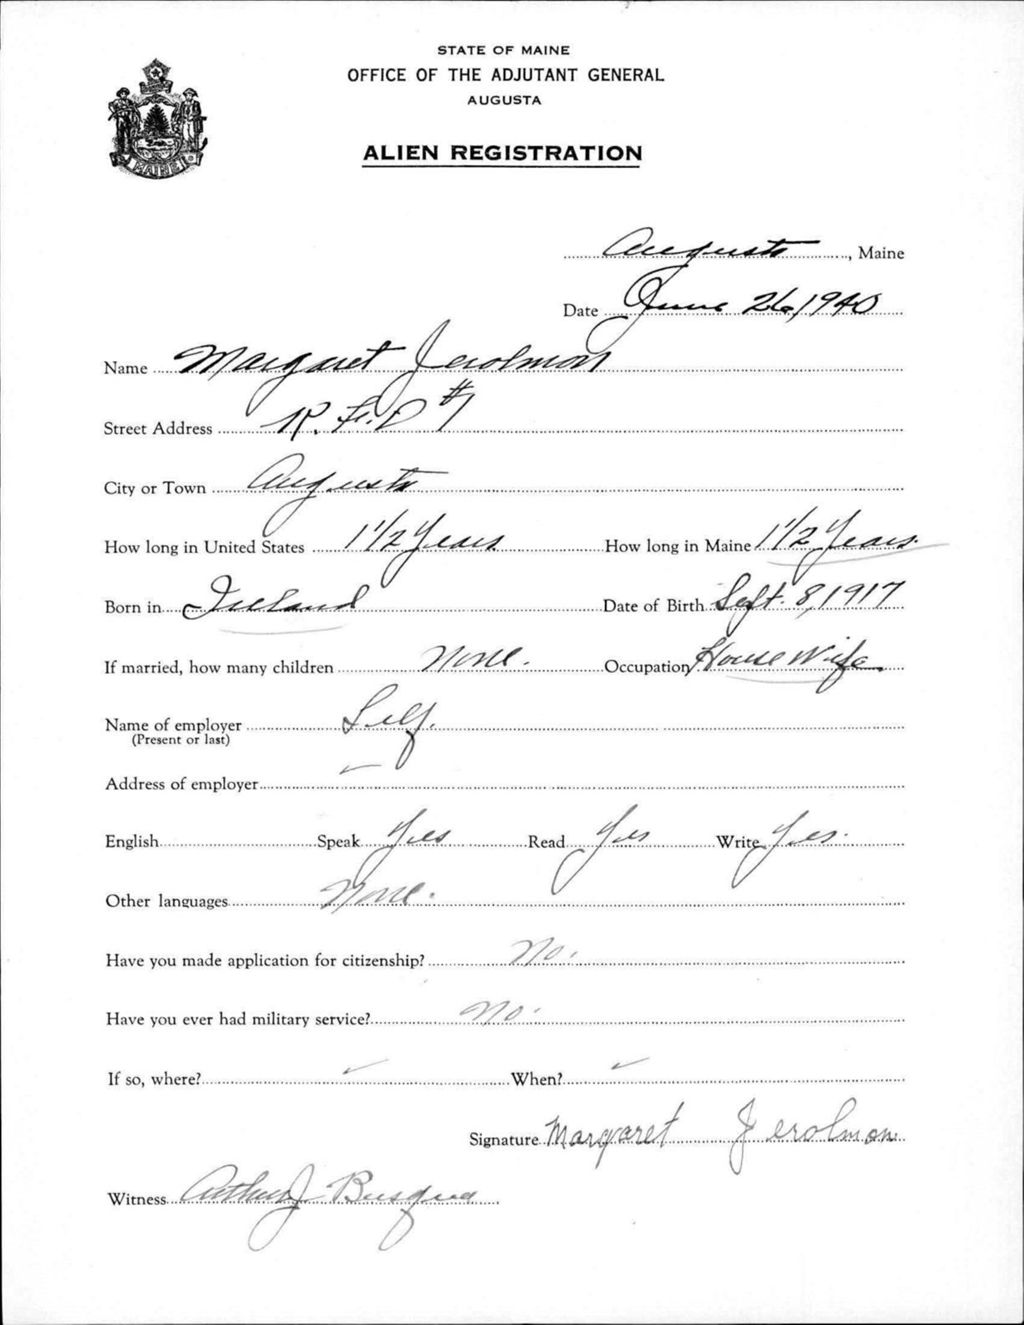 STATE OF MAINE
OFFICE OF THE ADJUTANT GENERAL
AUGUSTA
ALIEN REGISTRATION
MAINE
Augusta, Maine
Date June 26, 1940
Name Margaret Jerolmon
Street Address R.F.D #7
City or Town Augusta
How long in United States 1 1/2 Years How long in Maine 1 1/2 Years
Born in Ireland Date of Birth Sept. 8, 1917
If married, how many children None. Occupation House Wife
Name of employer Self.
(Present or last)
Address of employer
English Speak Yes Read Yes Write Yes.
Other languages None.
Have you made application for citizenship? No.
Have you ever had military service? No.
If so, where? When?
Signature Margaret Jerolmon
Witness Arthur J